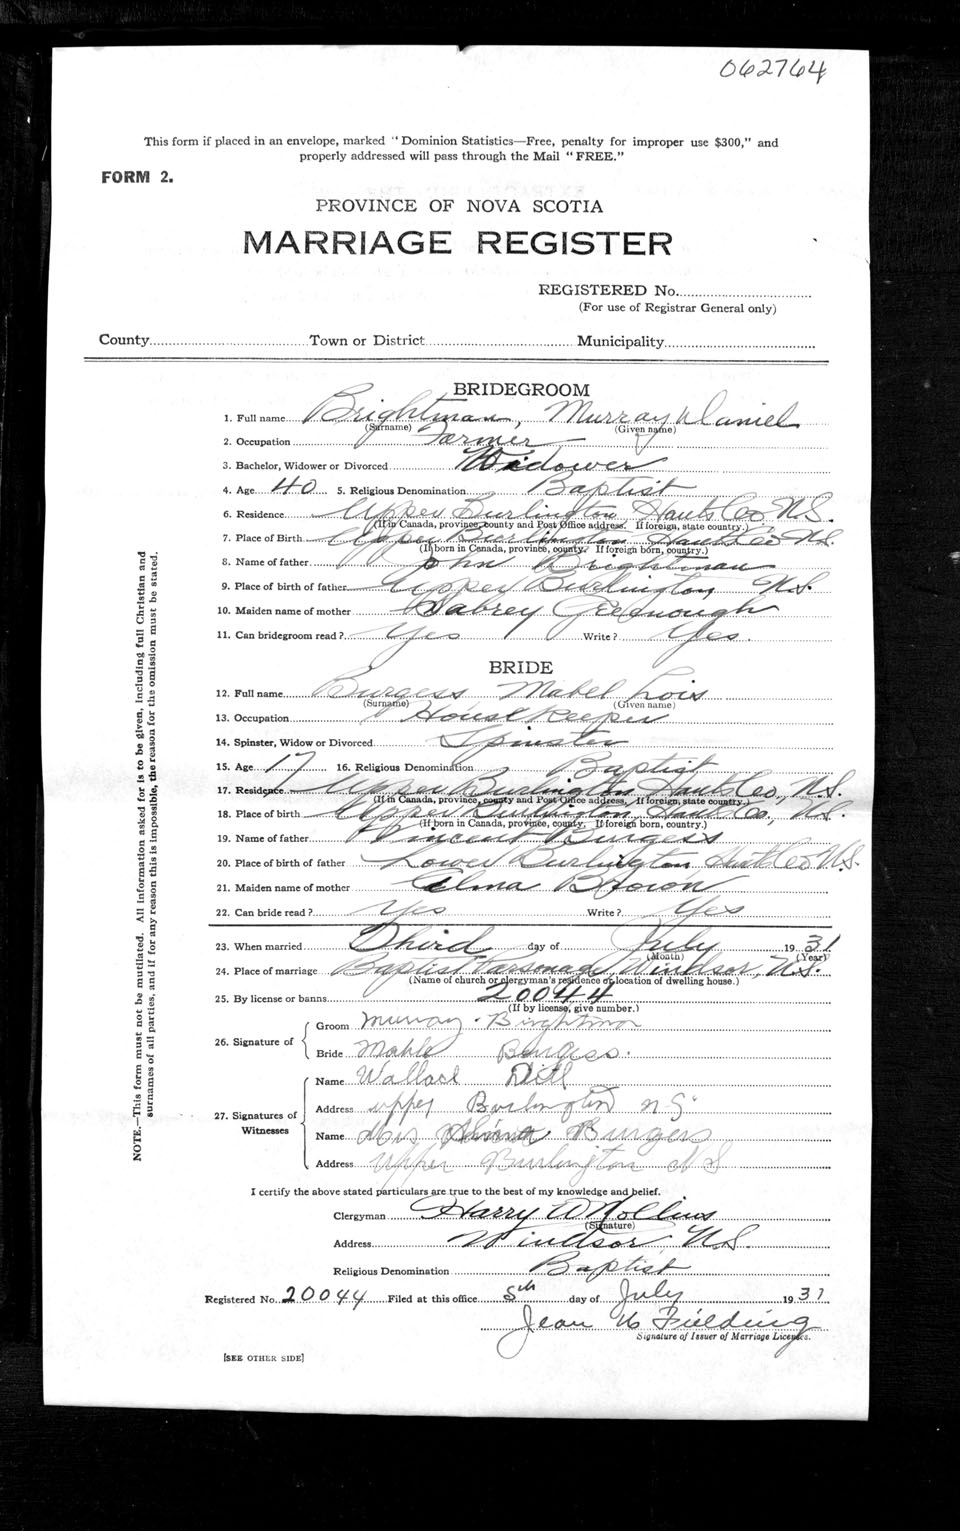 062764
This form if placed in an envelope, marked "Dominion Statistics—Free, penalty for improper use $300," and
properly addressed will pass through the Mail "FREE."
FORM 2.
PROVINCE OF NOVA SCOTIA
MARRIAGE REGISTER
REGISTERED No.
(For use of Registrar General only)
County Town or District Municipality
BRIDEGROOM
1. Full name Brightman, Murray Daniel
(Surname) (Given name)
2. Occupation Farmer
3. Bachelor, Widower or Divorced Widower
4. Age 40 5. Religious Denomination Baptist
6. Residence Upper Burlington Hants Co N.S.
(If in Canada, province, county and Post Office address. If foreign, state country.)
7. Place of Birth Upper Burlington Hants Co N.S.
(If born in Canada, province, county. If foreign born, country.)
8. Name of father John Brightman
9. Place of birth of father Upper Burlington N.S.
10. Maiden name of mother Greenough
11. Can bridegroom read? Yes Write? Yes.
BRIDE
12. Full name Burgess Mabel Lois
(Surname) (Given name)
13. Occupation House Keeper
14. Spinster, Widow or Divorced Spinster
15. Age 17 16. Religious Denomination Baptist
17. Residence Upper Burlington Hants Co., N.S.
(If in Canada, province, county and Post Office address. If foreign, state country.)
18. Place of birth Upper Burlington Hants Co., N.S.
(If born in Canada, province, county. If foreign born, country.)
19. Name of father Vincent Burgess
20. Place of birth of father Lower Burlington, Hants Co N.S.
21. Maiden name of mother Elma Brown
22. Can bride read? Yes Write? Yes
23. When married Third day of July 1931
(Month) (Year)
24. Place of marriage Baptist Parsonage, Windsor, N.S.
(Name of church or clergyman's residence or location of dwelling house.)
25. By license or banns 20044
(If by license, give number.)
26. Signature of
Groom Murray Brightman
Bride Burgess.
27. Signatures of Witnesses
Name Wallace
Address upper Burlington NS
Name Mrs Burgess
Address Upper Burlington NS
I certify the above stated particulars are true to the best of my knowledge and belief.
Clergyman Harry
(Signature)
Address Windsor, N.S.
Religious Denomination Baptist
Registered No. 20044 Filed at this office 5th day of July 1931
Jean Fielding
Signature of Issuer of Marriage Licenses.
[SEE OTHER SIDE]
NOTE.—This form must not be mutilated. All information asked for is to be given, including full Christian and
surnames of all parties, and if for any reason this is impossible, the reason for the omission must be stated.